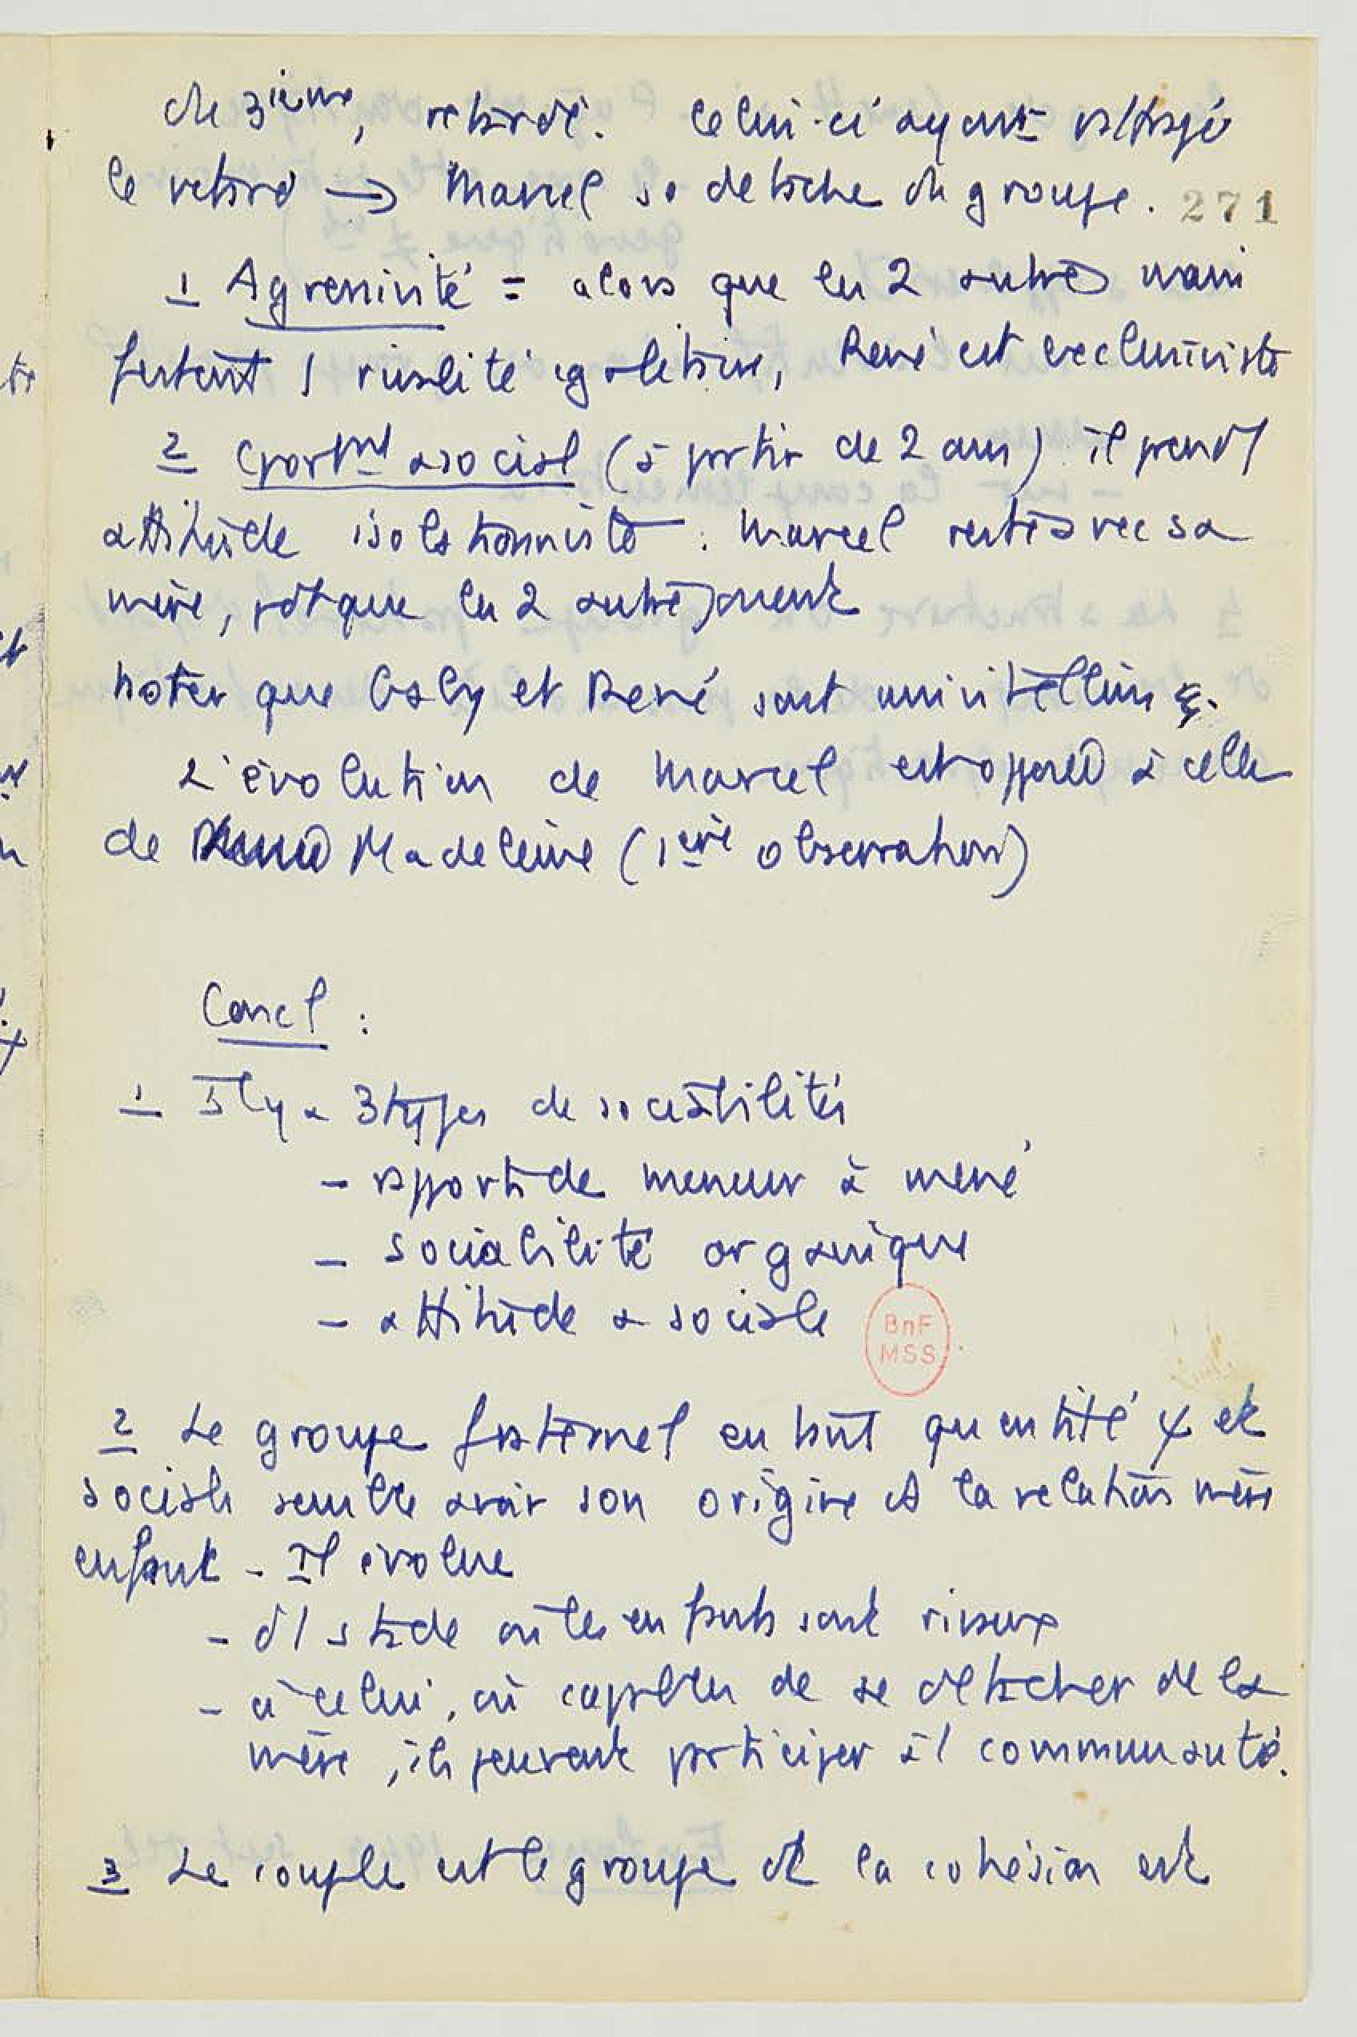 du 3ième, retardé. Celui-ci ayant rattrapé
le retard → Marcel se détache du groupe. 271
1 Agressivité = alors que les 2 autres mani
festent 1 rivalité égalitaire, René est exclusiviste
2 Cportmt asocial (à partir de 2 ans) il prend 1
attitude isolationniste : Marcel reste avec sa
mère, pdt que les 2 autres jouent
Noter que Gaby et René sont univitellins.
L'évolution de Marcel est opposée à celle
de Madeleine (1ère observation)
Concl :
1 Il y a 3 types de sociabilités
- rapport de meneur à mené
- sociabilité organique
- attitude asociale
BnF
MSS
2 Le groupe fraternel en tant qu'entité χ et
sociale semble avoir son origine ds la relation mère
enfant - Il évolue
- d'1 stade où les enfants sont rivaux
- à celui, où capables de se détacher de la
mère, ils peuvent participer à 1 communauté.
3 Le couple est le groupe dt la cohésion est